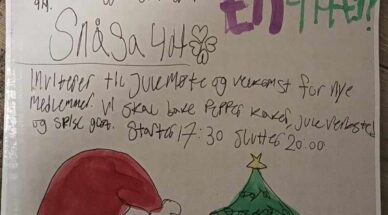 4H.
EN
Snåsa 4H
Inviterer til Julemøte og velkomst for nye
medlemmer. Vi skal bake Pepper kaker, Jule verksted
og spise grøt. Starter 17:30 Slutter 20:00.